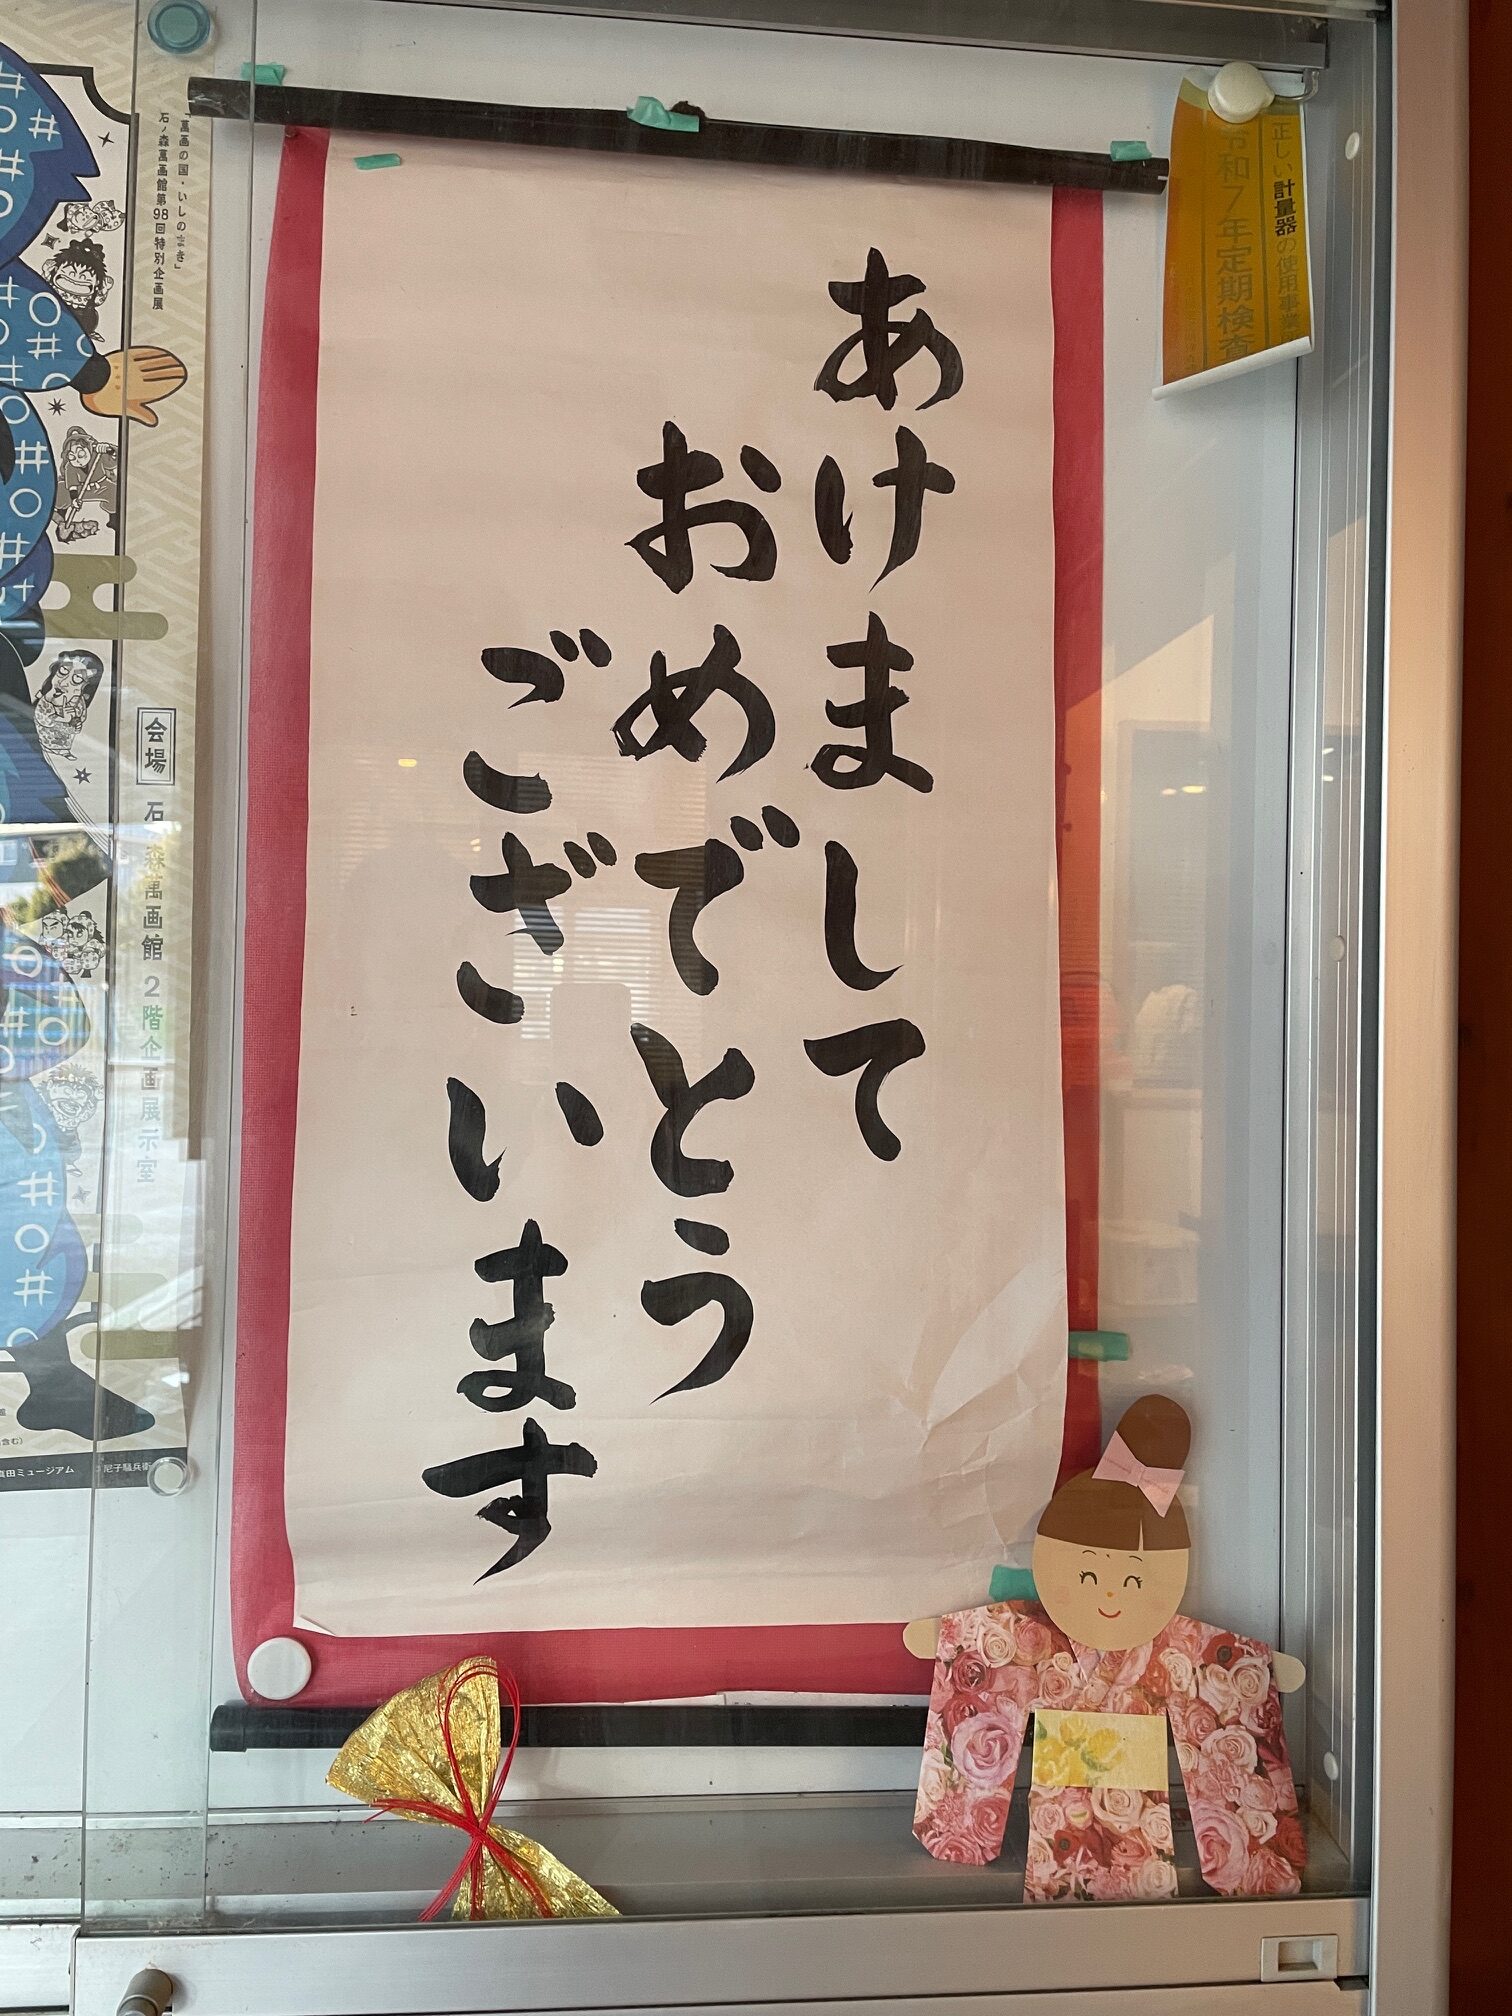 あけまして
おめでとう
ございます
正しい計量器の使用事業
令和7年定期検査
「萬画の国・いしのまき」
石ノ森萬画館第98回特別企画展
会場
石ノ森萬画館 2階企画展示室
真田ミュージアム
尼子騒兵衛